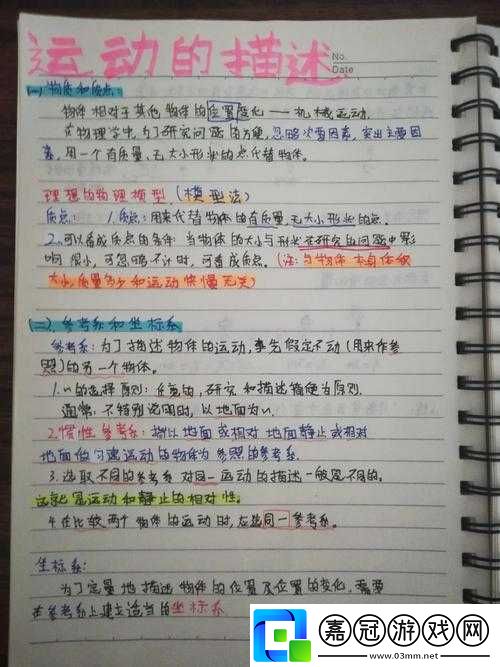 运动的描述
No.
Date
(一)物质和质点:
物体相对于其他物体的位置变化——机械运动.
在物理学中,为了研究问题的方便,忽略次要因素,突出主要因
素,用一个有质量,无大小形状的点代替物体。
理想的物理模型(模型法)
质点: 1.质点:用来代替物体的有质量,无大小形状的点.
2.可以看成质点的条件:当物体的大小与形状在研究的问题中影
响很小,可忽略不计时,可看成质点。(注:与物体本身体积
大小,质量多少和运动快慢无关)
(二)、参考系和坐标系
参考系:为了描述物体的运动,事先假定不动(用来作参
照)的另一个物体。
1.的选择原则:任意的,研究和描述简便为原则.
通常,不特别说明时,以地面为
2.惯性参考系:指以地面或相对地面静止或相对
地面做匀速运动的物体为参照的参考系.
3.选取不同的参考系对同一运动的描述一般是不同的。
这就是运动和静止的相对性。
4.在比较两个物体的运动时,应选同一参考系。
坐标系:
为了定量地描述物体的位置及位置的变化,需要
在参考系上建立适当的坐标系
嘉冠游戏网
www.03mm.net